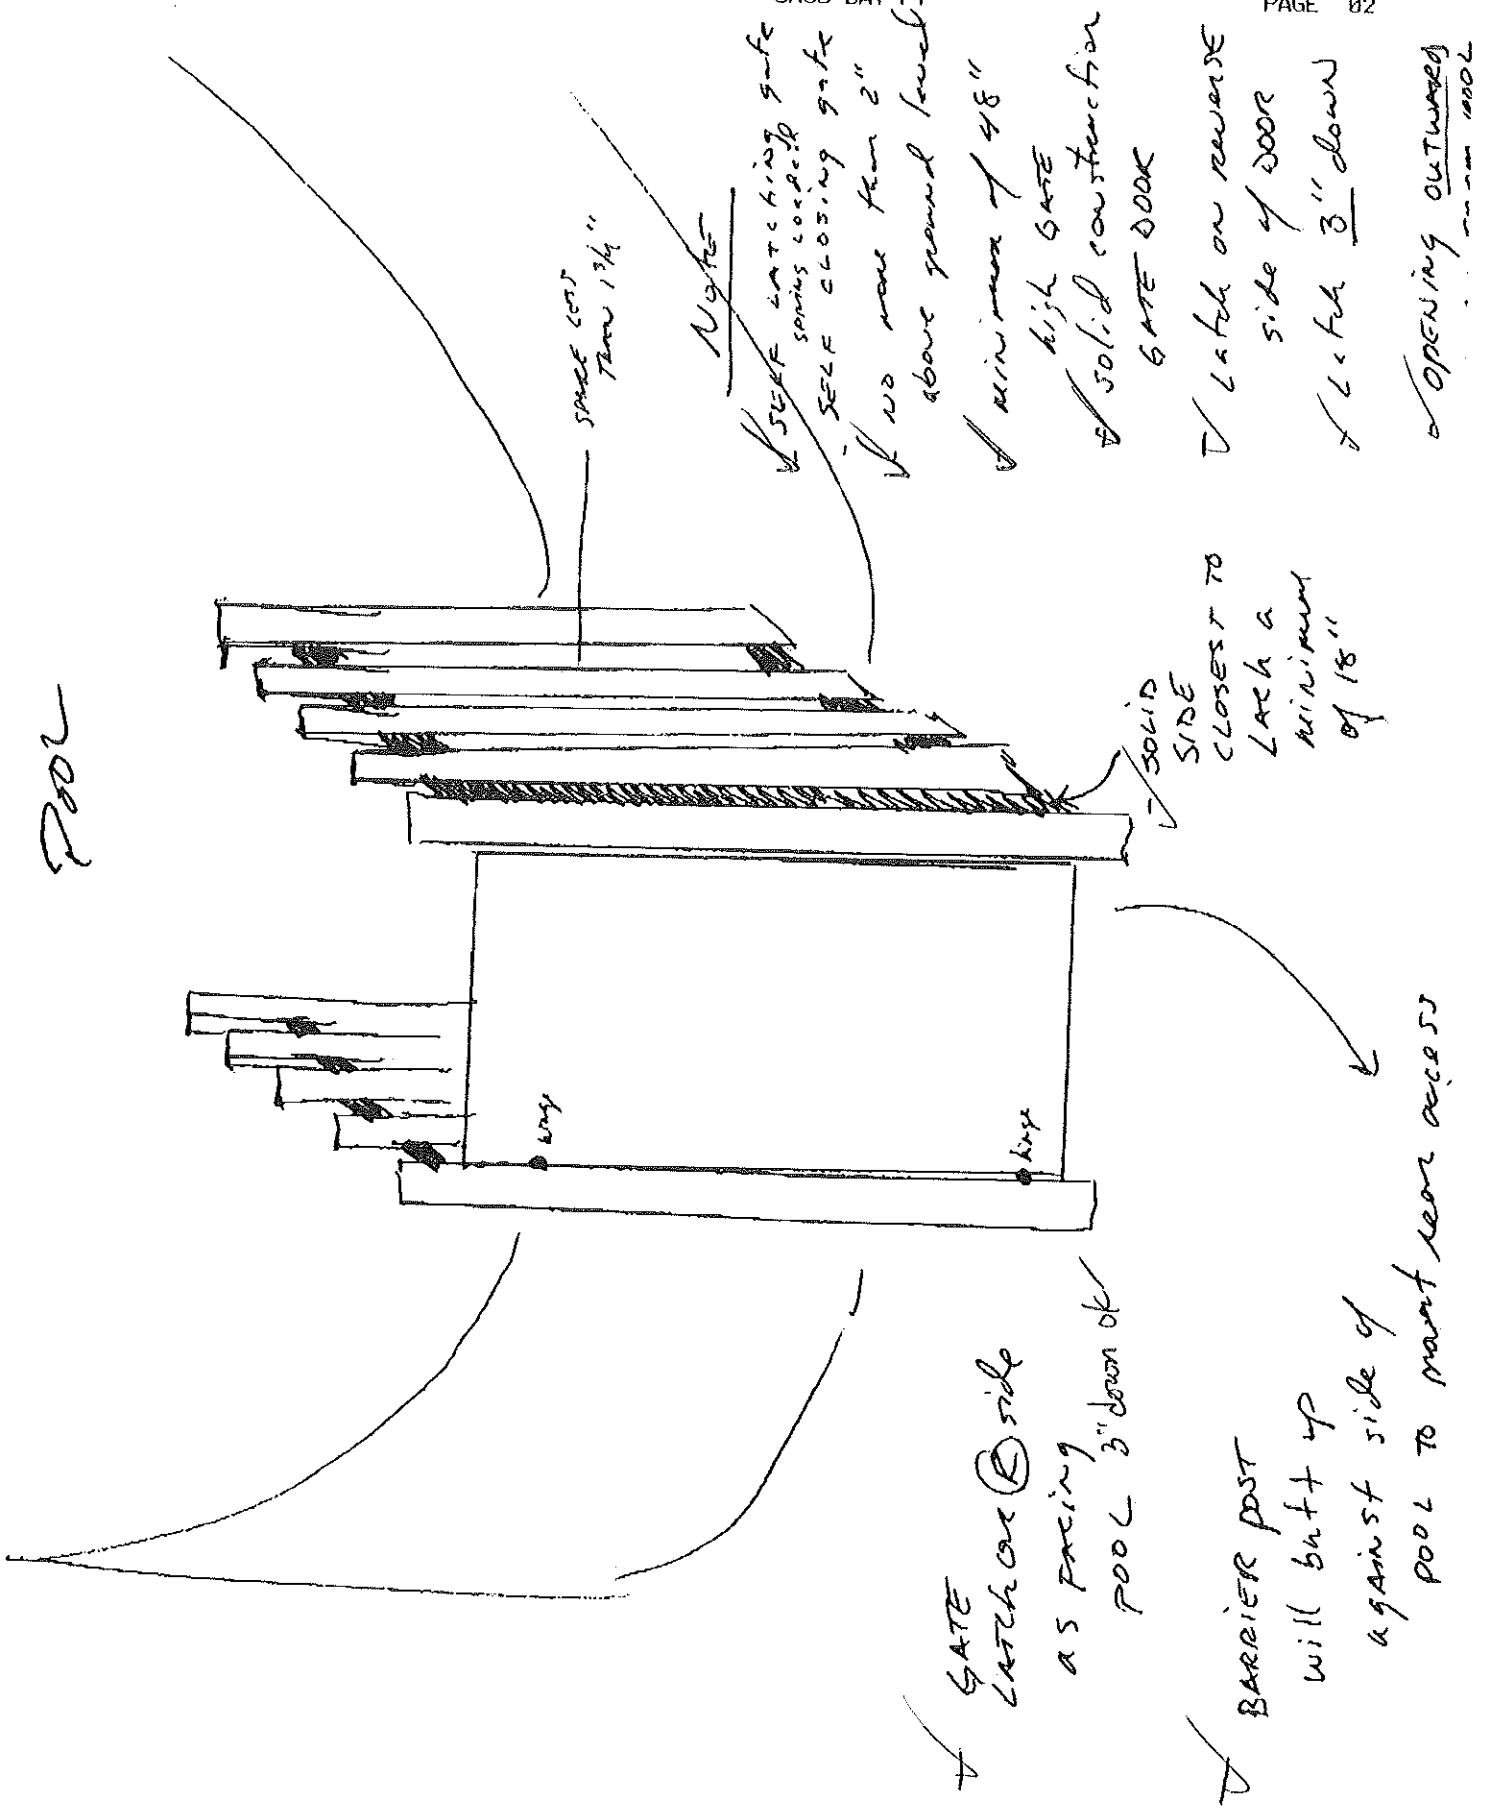 PAGE 02
POOL
SPACE LESS
THAN 1 3/4"
Note
SELF LATCHING gate
SPRING LOADED
SELF CLOSING gate
NO more than 2"
above ground level
minimum of 48"
high GATE
solid construction
GATE DOOR
Latch on reverse
side of DOOR
Latch 3" down
OPENING OUTWARD
POOL
SOLID
SIDE
CLOSEST TO
Latch a
minimum
of 18"
hinge
hinge
GATE
LATCH on R side
as FACING
POOL 3" down ok
BARRIER POST
will butt up
against side of
POOL TO prevent rear access